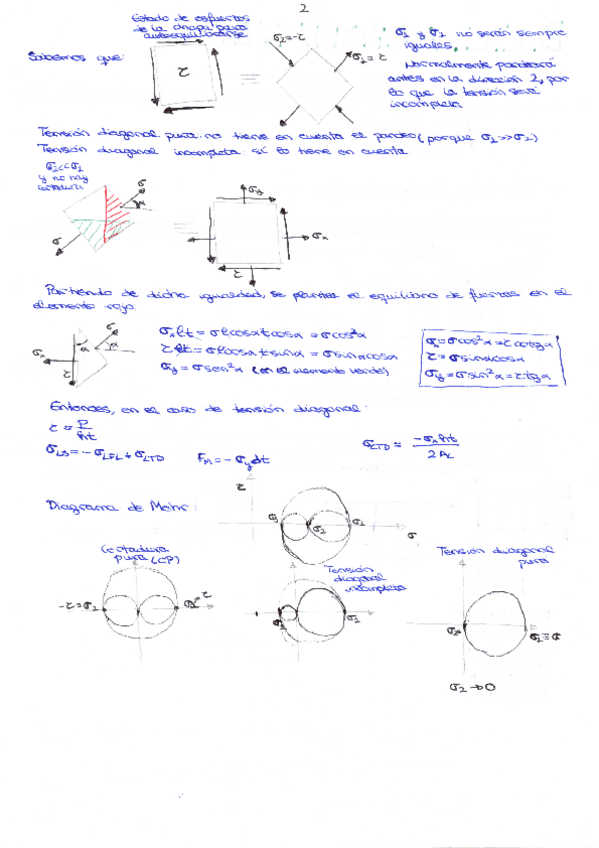 2
Estado de esfuerzos
de la chapa para
autoequilibrarse
Sabemos que:
τ
σ₂=-τ
σ₁=τ
σ₁ y σ₂ no serán siempre
iguales.
Normalmente pandeará
antes en la dirección 2, por
lo que la tensión será
incompleta
Tensión diagonal pura: no tiene en cuenta el pandeo (porque σ₁>>σ₂)
Tensión diagonal incompleta: sí lo tiene en cuenta
σ₂<<σ₁
y no hay
cortadura
σ
α
σ
σy
σx
τ
Partiendo de dicha igualdad, se plantea el equilibrio de fuerzas en el
elemento rojo.
σ
σx
α
α
τ
σx ht = σ h cosα t cosα = σ cos²α
τ ht = σ h cosα t sinα = σ sinα cosα
σy = σ sen²α (en el elemento verde)
σx = σ cos²α = τ cotgα
τ = σ sinα cosα
σy = σ sin²α = τ tgα
Entonces, en el caso de tensión diagonal:
τ = P/ht
σLS = -σLFL + σLTD
FM = -σy dt
σLTD = -σx ht / 2AL
Diagrama de Mohr:
τ
σ₂
σ₁
σ
Cortadura
pura (CP)
-τ=σ₂
Tensión
diagonal
incompleta
σ₁
Tensión diagonal
pura
σ₂
σ₁=σ
σ₂→0